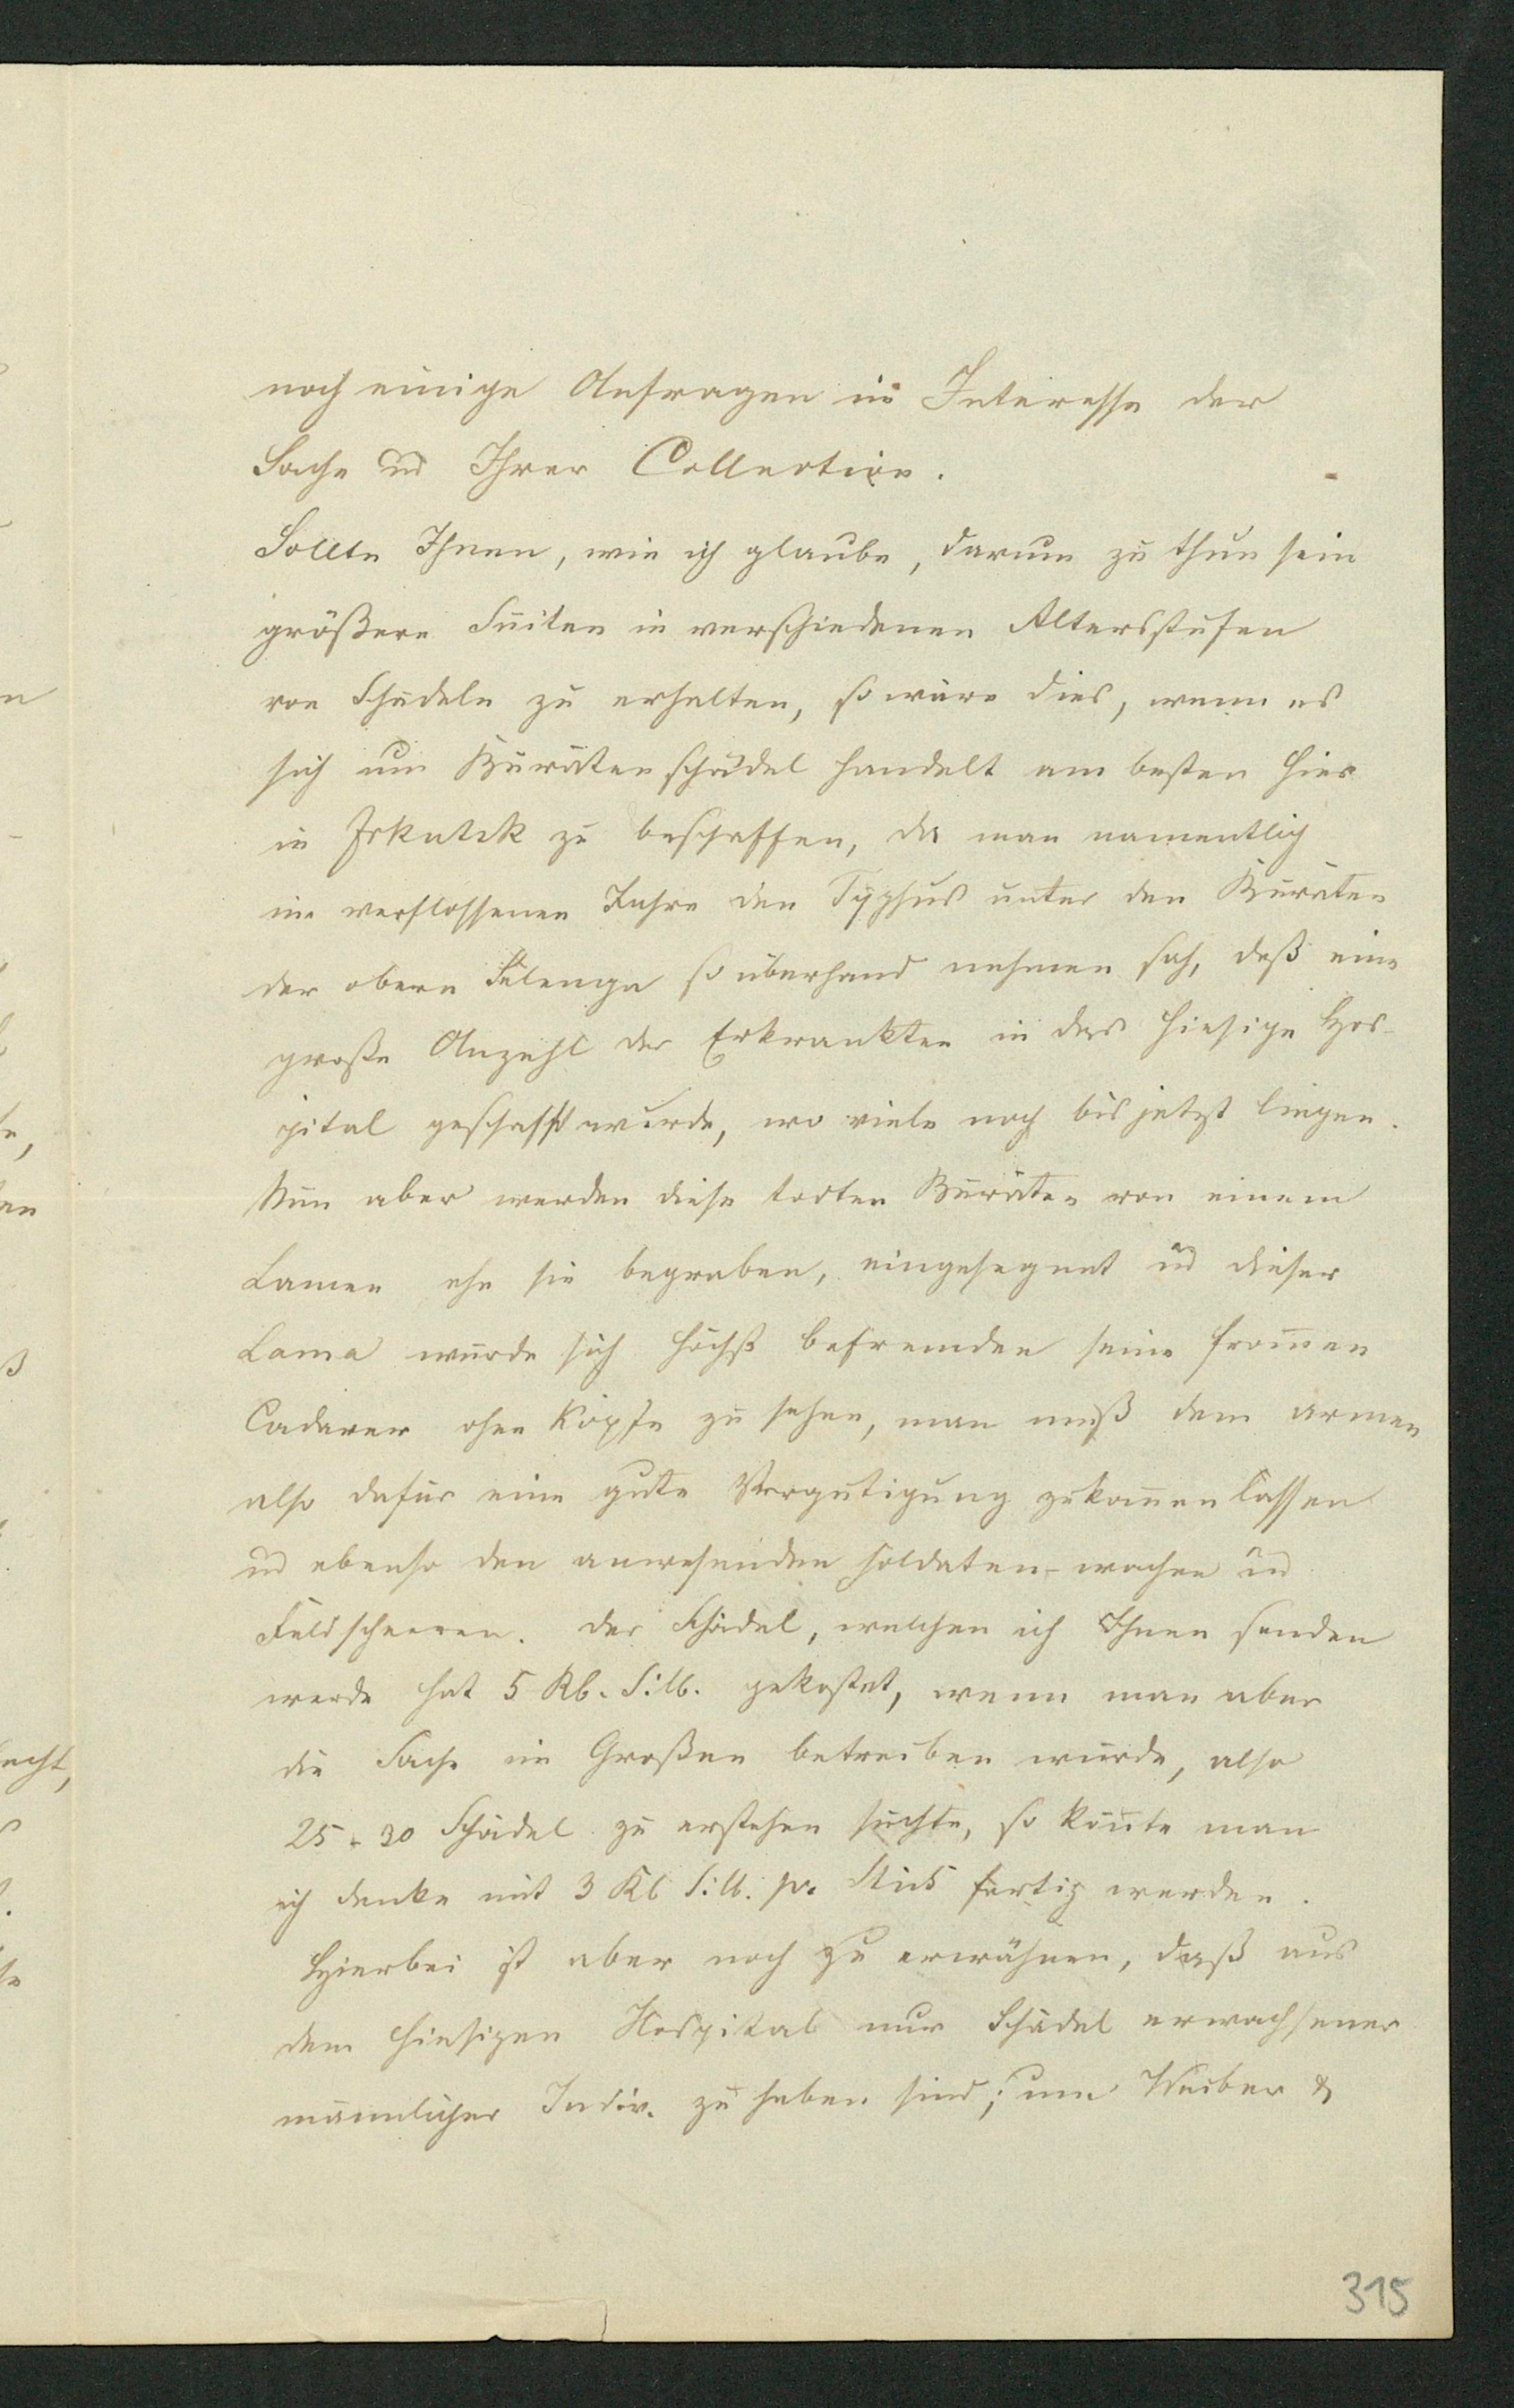 noch einige Anfragen im Interesse der
Sache und Ihrer Collection.
Sollte Ihnen, wie ich glaube, darum zu thun sein
größere Suiten in verschiedenen Altersstufen
von Schädeln zu erhalten, so wäre dies, wenn es
sich um Buräten schädel handelt am besten hier
in Irkutsk zu beschaffen, da man namentlich
im verflossenen Jahre den Typhus unter den Buräten
der obern Selenga so überhand nehmen sah, daß eine
große Anzahl der Erkrankten in das hiesige Hos-
pital geschafft wurde, wo viele noch bis jetzt liegen.
Nun aber werden diese todten Buräten von einem
Lamen ehe sie begraben, eingesegnet ud dieser
Lama würde sich höchst befremden seine from̄en
Cadaver ohne Köpfe zu sehen, man muß dem armen
also dafür eine gute Vergütigung zukom̄en lassen
ud ebenso den anwesenden Soldaten-wachen ud
Feldscheeren. Der Schädel, welchen ich Ihnen senden
werde hat 5 Rb. Silb. gekostet, wenn man aber
die Sache im Großen betreiben würde, also
25-30 Schädel zu erstehen suchte, so kön̄te man
ich denke mit 3 Rb Silb. pr. Stück fertig werden.
Hierbei ist aber noch zu erwähnen, daß aus
dem hiesigen Hospital nur Schädel erwachsener
männlicher Indiv. zu haben sind; um Weiber &
315
n
te,
en
ß
echt,